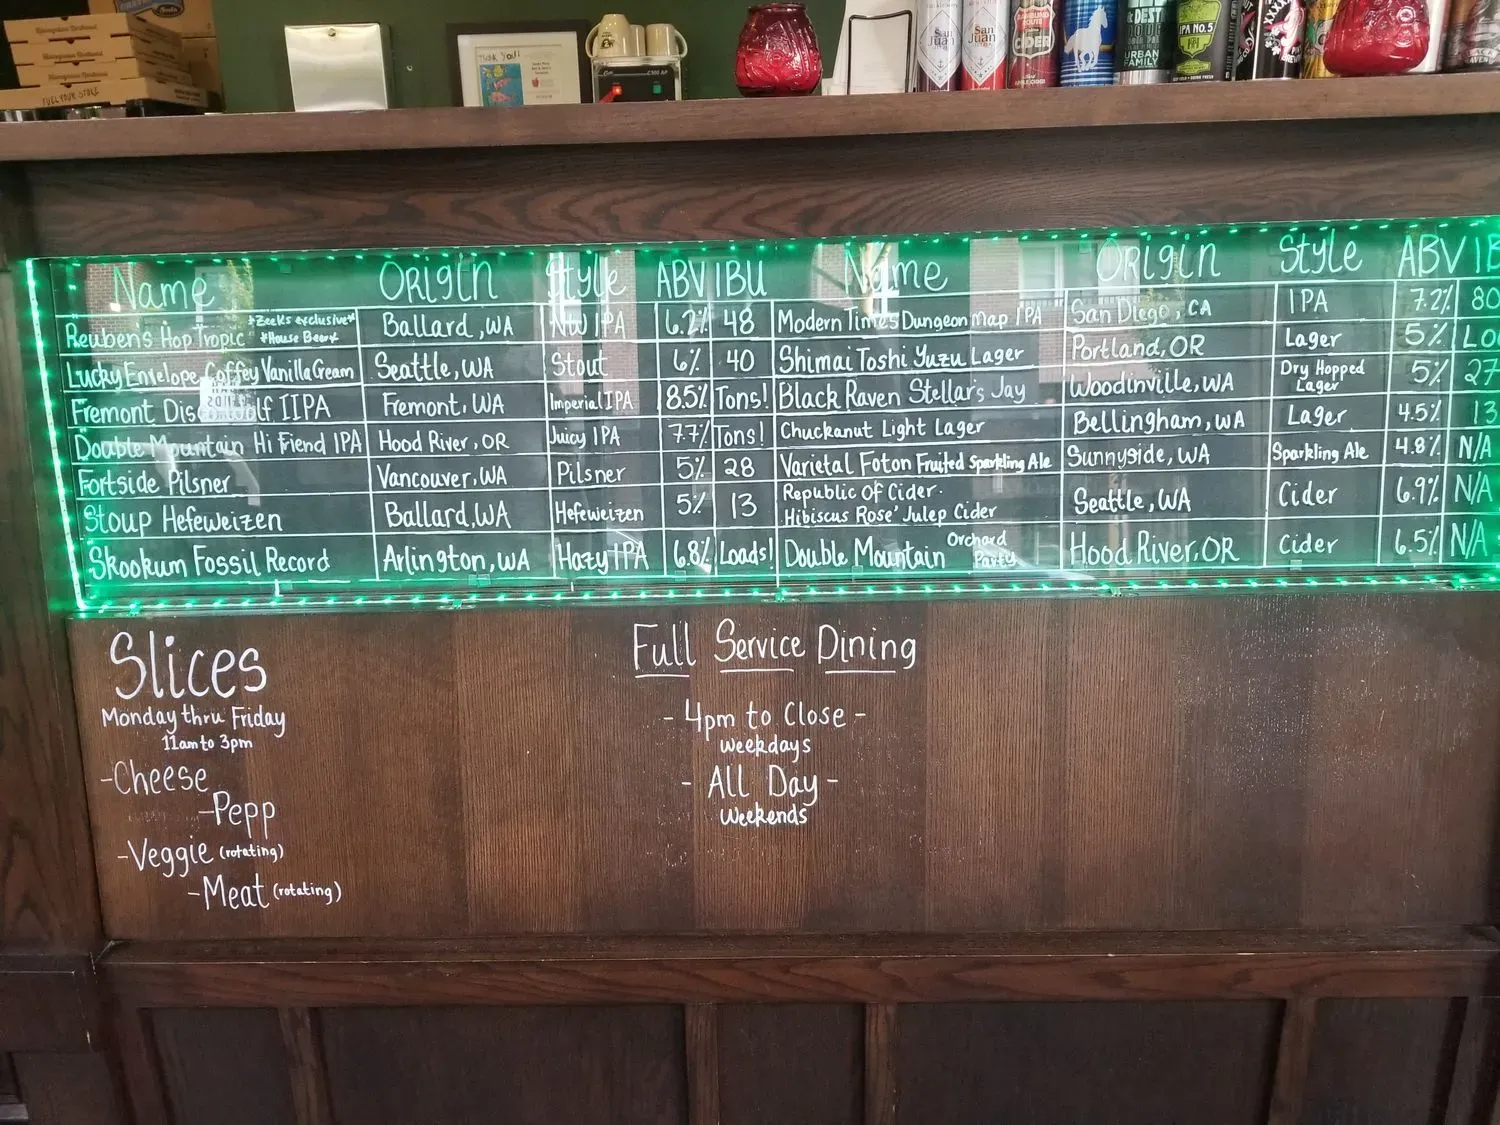 Thank You!
FUEL YOUR STOKE
San Juan
San Juan
CIDER
URBAN FAMILY
IPA NO. 5
Name Origin Style ABV IBU Name Origin Style ABV
Reuben's Hop Tropic *Zeeks exclusive* *House Beer* Ballard, WA NW IPA 6.2% 48 Modern Times Dungeon Map IPA San Diego, CA IPA 7.2% 80
Lucky Envelope Coffey Vanilla Cream Seattle, WA Stout 6% 40 Shimai Toshi Yuzu Lager Portland, OR Lager 5%
Fremont IIPA Fremont, WA Imperial IPA 8.5% Tons! Black Raven Stellar's Jay Woodinville, WA Dry Hopped Lager 5% 27
Double Mountain Hi Fiend IPA Hood River, OR Juicy IPA 7.7% Tons! Chuckanut Light Lager Bellingham, WA Lager 4.5% 13
Fortside Pilsner Vancouver, WA Pilsner 5% 28 Varietal Foton Fruited Sparkling Ale Sunnyside, WA Sparkling Ale 4.8% N/A
Stoup Hefeweizen Ballard, WA Hefeweizen 5% 13 Republic Of Cider. Hibiscus Rose' Julep Cider Seattle, WA Cider 6.9% N/A
Skookum Fossil Record Arlington, WA Hazy IPA 6.8% Loads! Double Mountain Orchard Party Hood River, OR Cider 6.5% N/A
Slices
Monday thru Friday
11am to 3pm
-Cheese
-Pepp
-Veggie (rotating)
-Meat (rotating)
Full Service Dining
- 4pm to Close -
weekdays
- All Day -
weekends